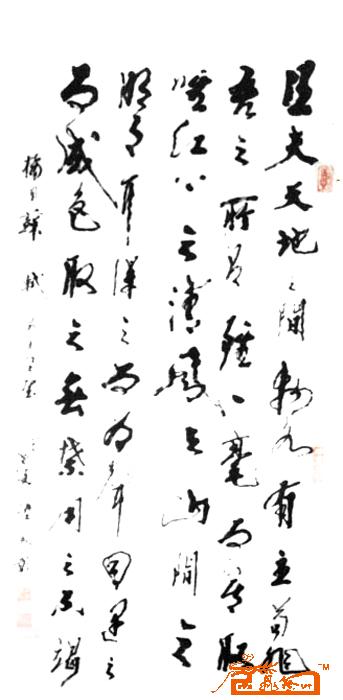 且夫天地之間物各有主苟非
吾之所有雖一毫而莫取
惟江上之清風與山間之
明月耳得之而為聲目遇之
而成色取之無禁用之不竭
蘇軾
TM